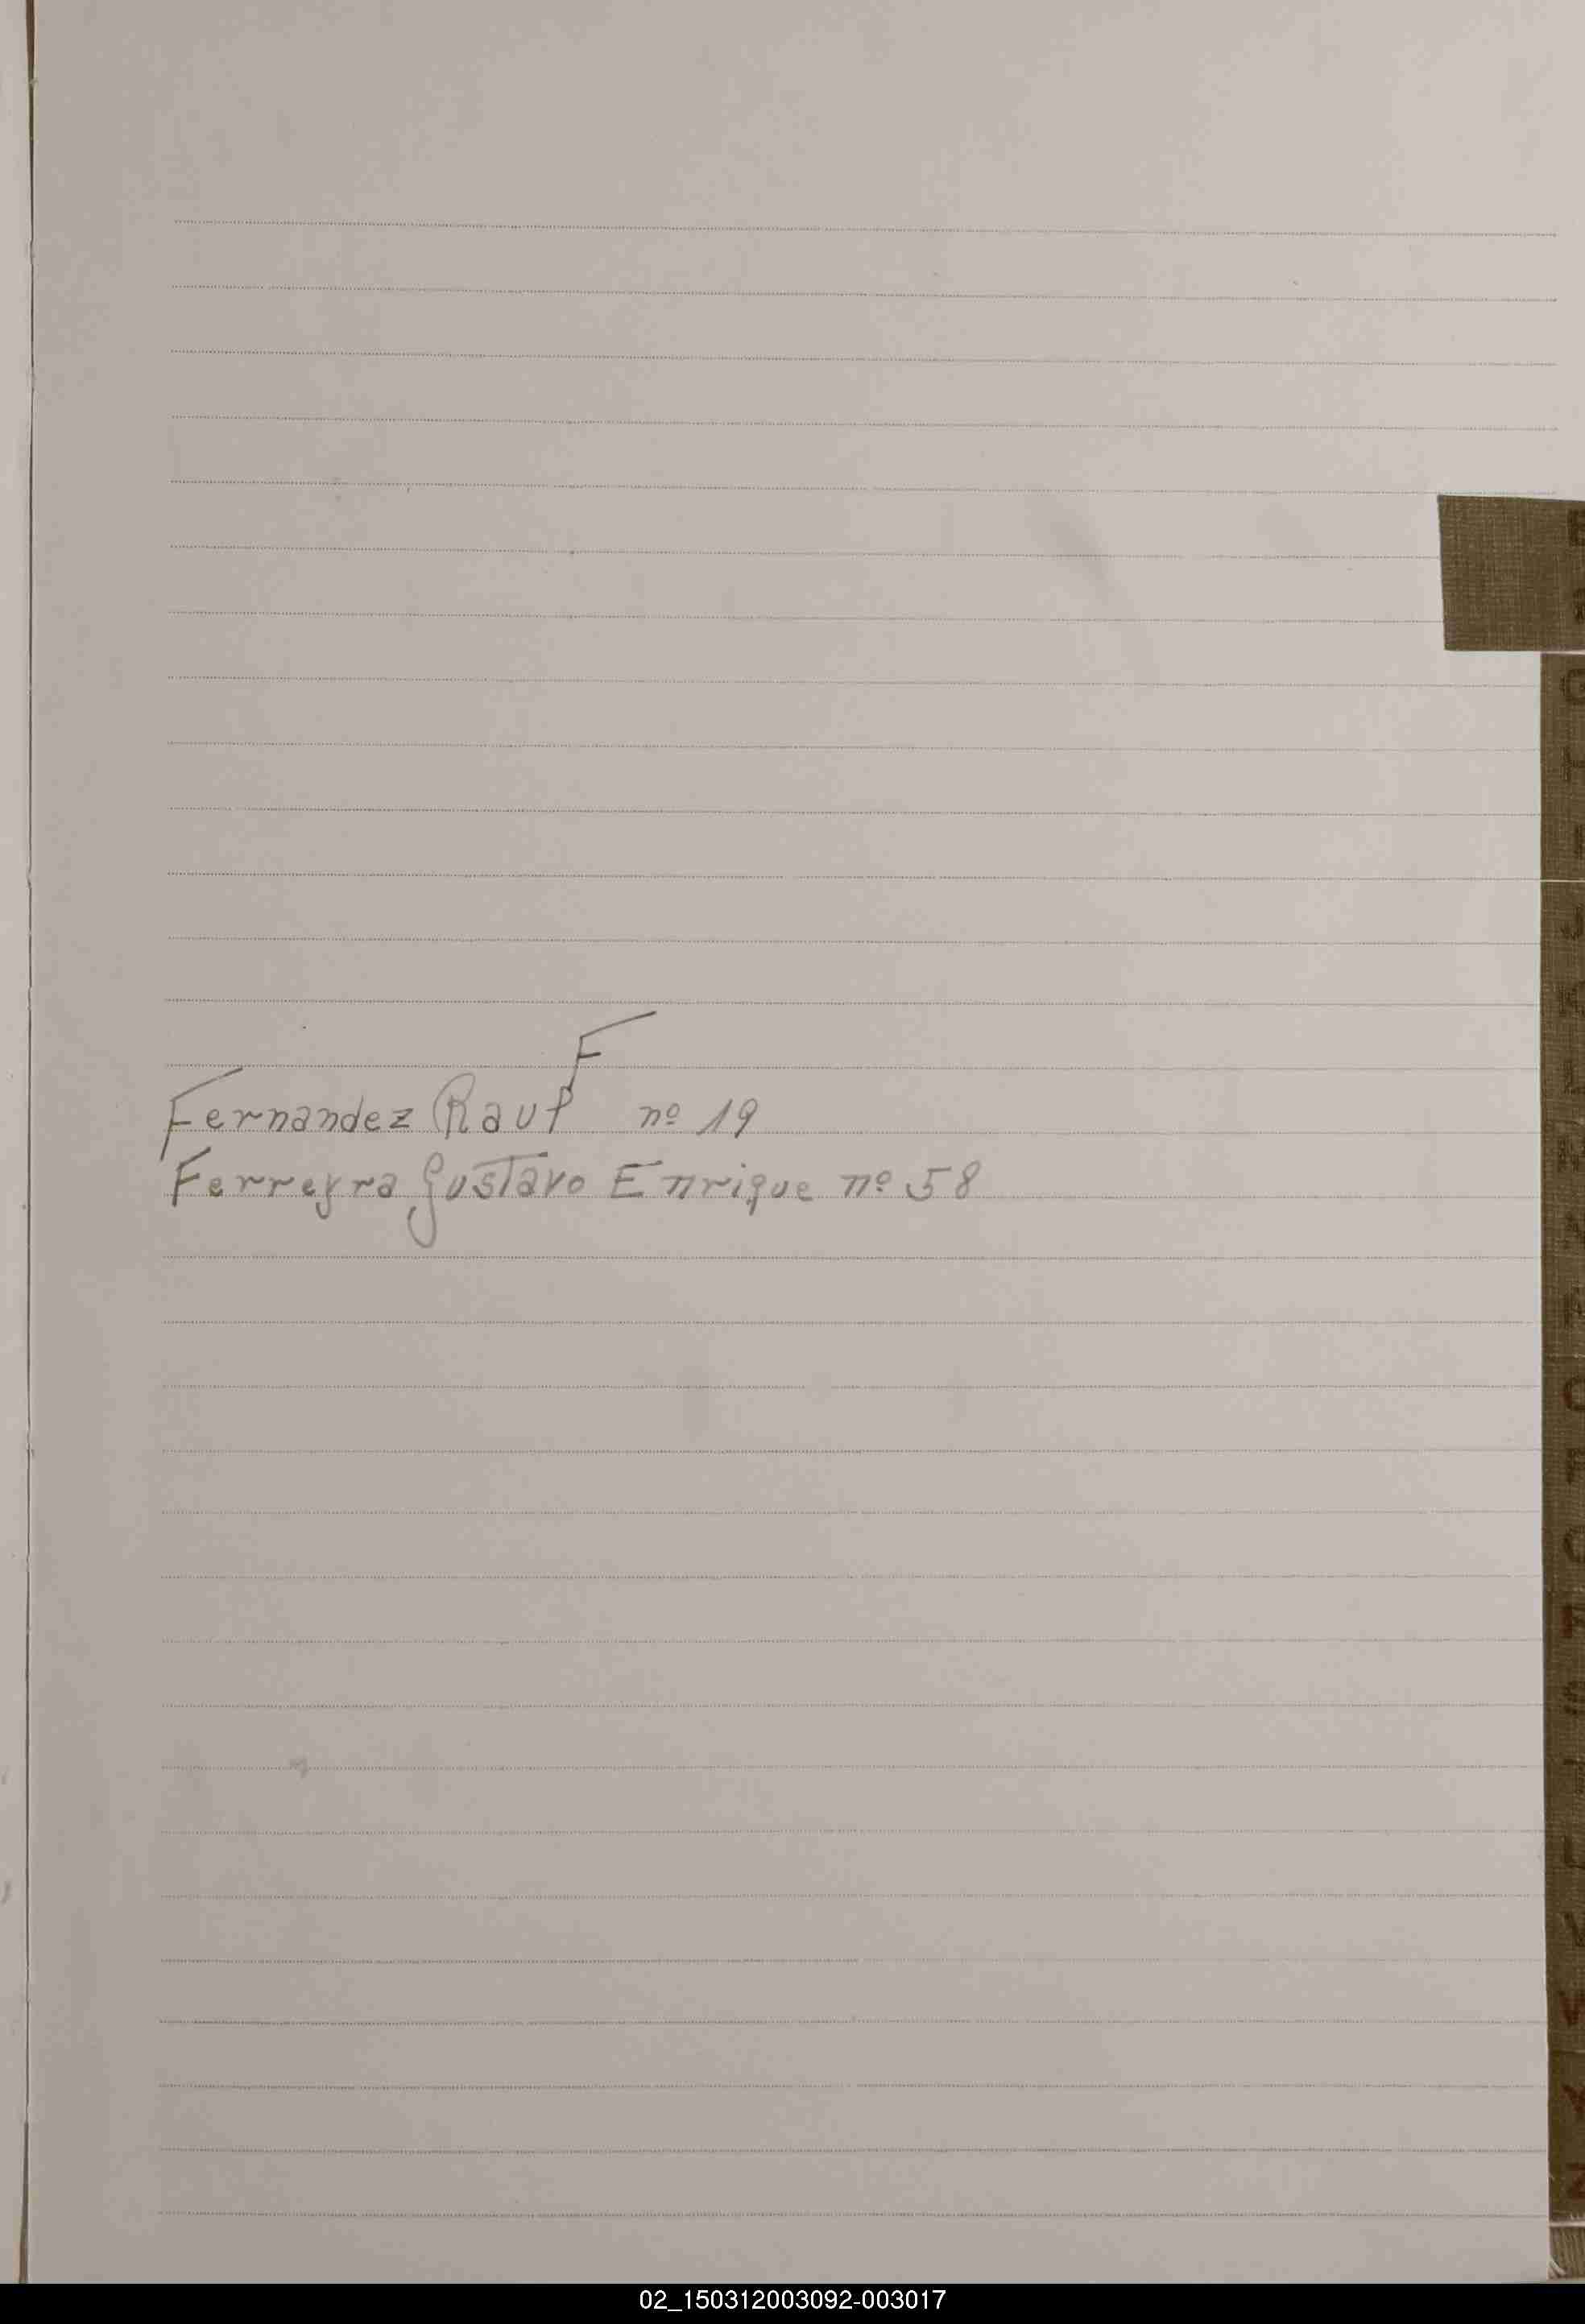 F
Fernandez Raul nº 19
Ferreyra Gustavo Enrique nº 58
02_150312003092-003017